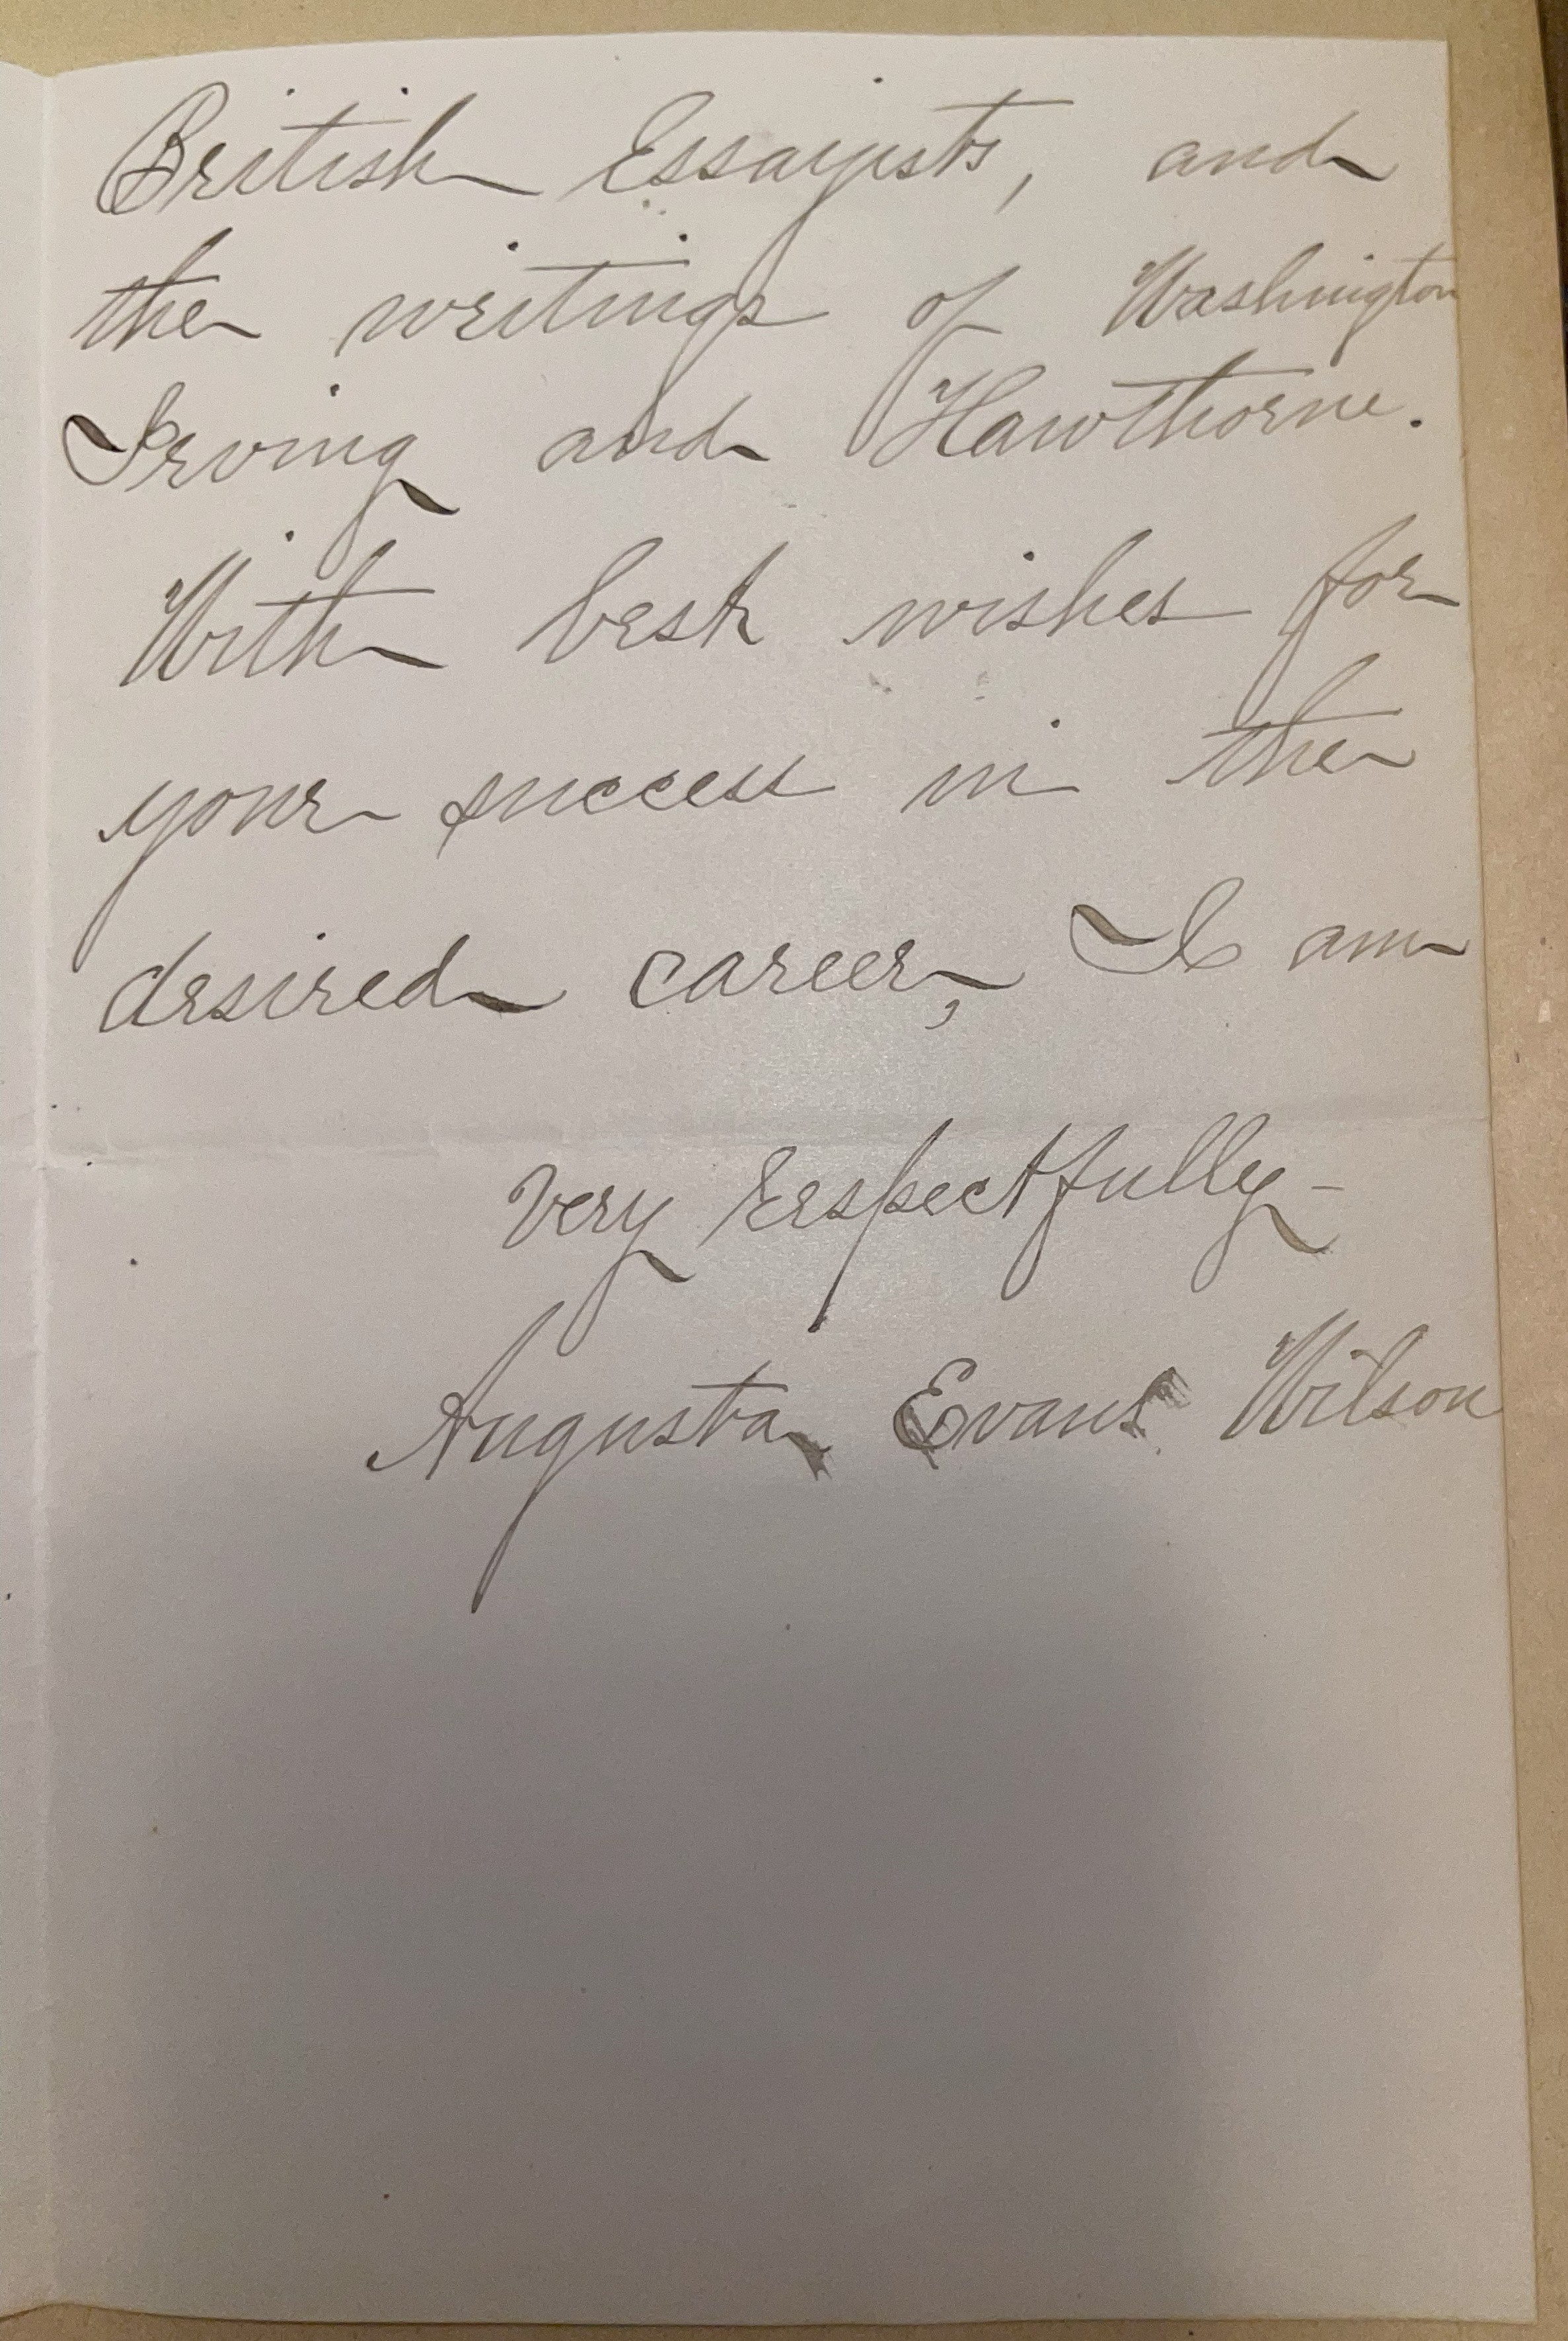 British Essayists, and
the writings of Washington
Irving and Hawthorne.
With best wishes for
your success in the
desired career, I am
Very Respectfully -
Augusta Evans Wilson